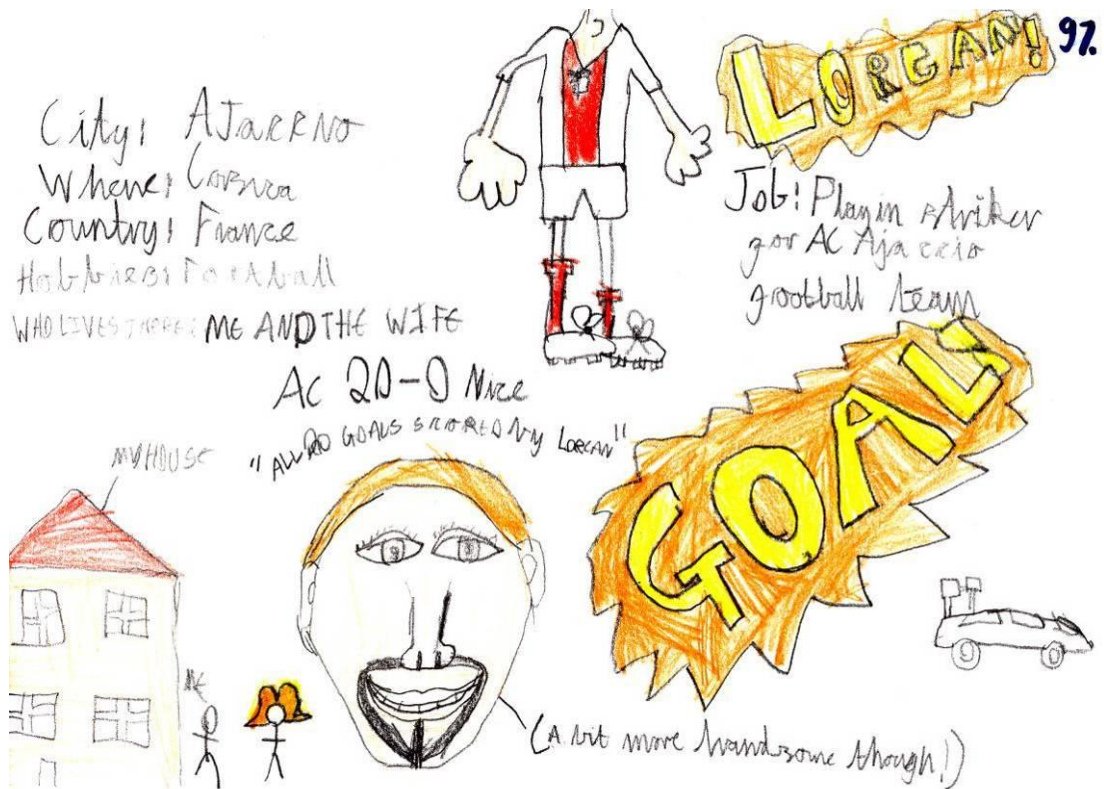 LORCAN!
97.
City: AJaccio
Where: Corsica
Country: France
Hobbies: Football
WHO LIVES THERE: ME AND THE WIFE
Job: Playin striker
for AC Ajaccio
football team
AC 20-0 Nice
"ALL 20 GOALS SCORED BY LORCAN"
GOAL
MY HOUSE
ME
(A bit more handsome though!)
9 0